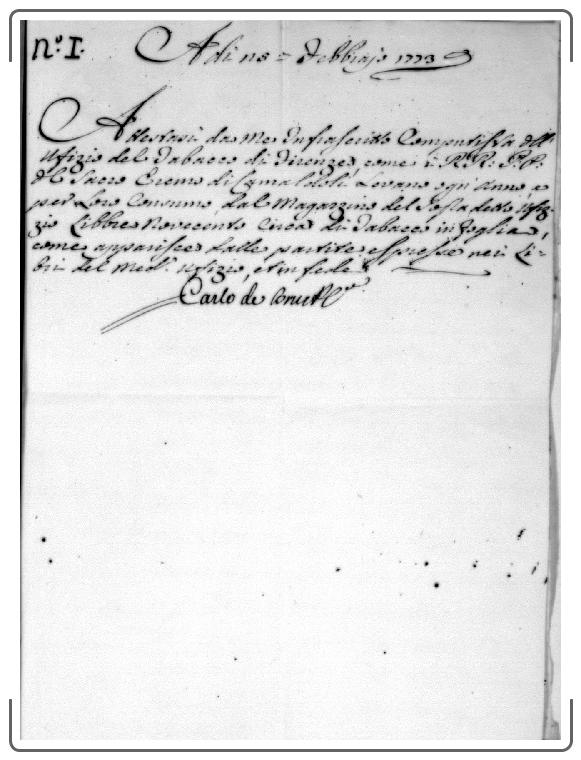 N.º I.
Adi 18 = Febbrajo 1773
Attestasi da me Infrascritto Computista dell'
Ufizio del Tabacco di Firenze, come i R.R: P.P.
del Sacro Eremo di Camaldoli, Levano ogni anno, e
per Loro Consumo, dal Magazzino del Sopradetto Ufi-
zio Libbre Novecento Circa di Tabacco in foglia,
come apparisce dalle partite espresse nei Li-
bri del Med.º Ufizio, et in fede
Carlo de